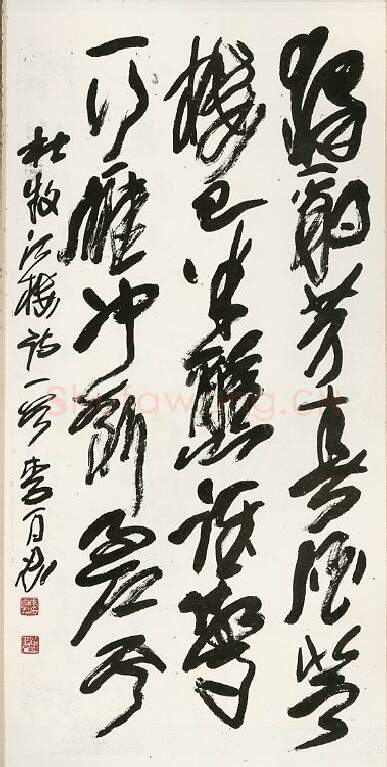 獨酌芳春酒登
樓已半醺誰驚
一行雁冲斷過江云
杜牧江樓詩一首 李百忍
Shufawang.cn